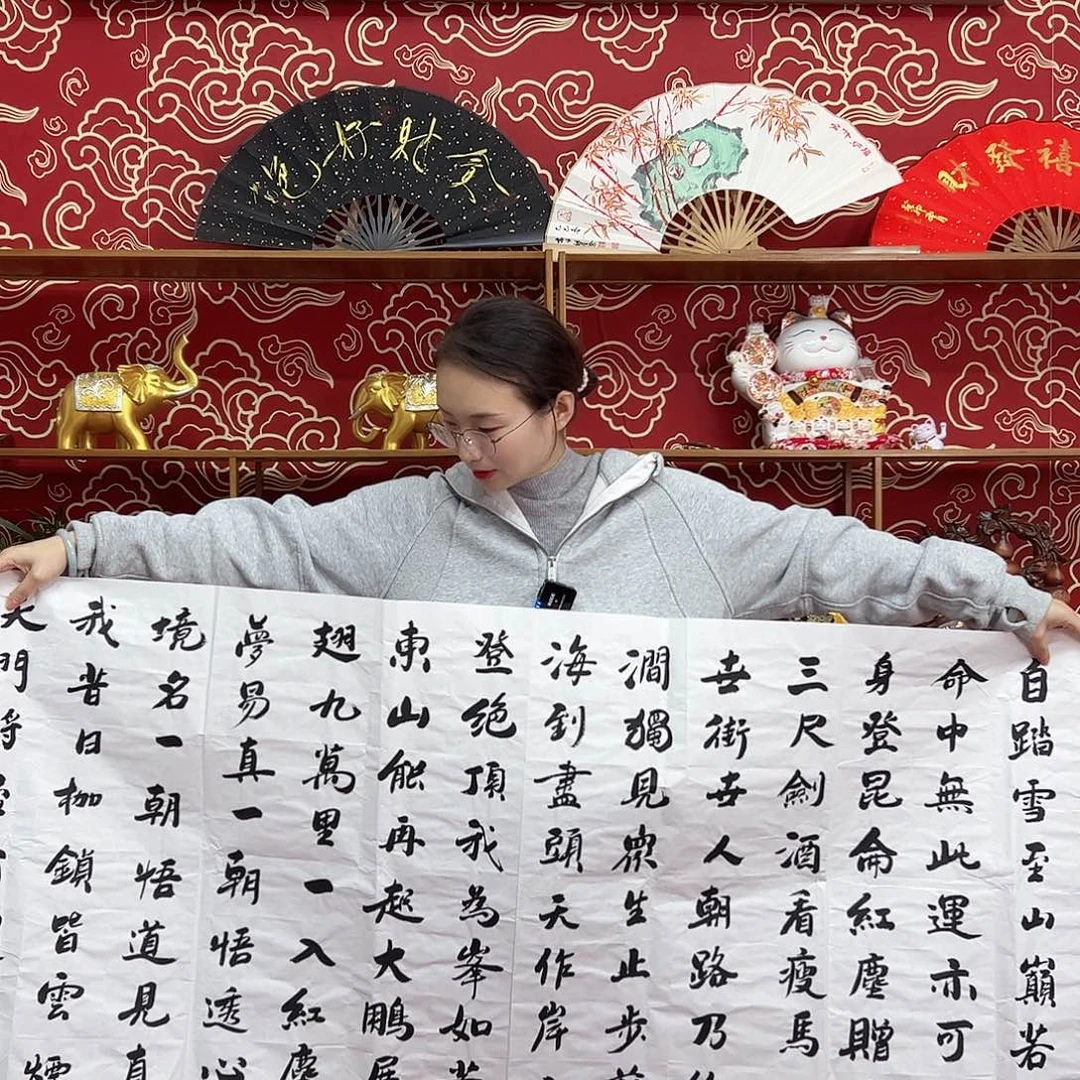 禧發財
自踏雪至山巔若
命中無此運亦可
身登昆侖紅塵贈
三尺劍酒看瘦馬
世街世人朝路乃
澗獨見眾生止步
海到盡頭天作岸
登绝頂我為峯如
東山能再起大鵬展
翅九萬里一入紅塵
夢易真一朝悟透心
境名一朝悟道見真
我昔日枷鎖皆雲煙
天門将